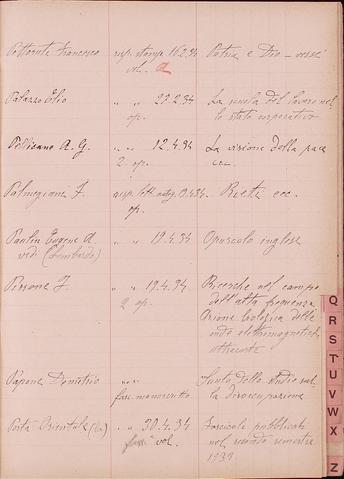 Pettorute Francesco risp. stamp. 16.2.34 Patria e Dio – versi
vol. a
Palazzo Elio " " 27.2.34 La scuola del lavoro nel
op. lo stato corporativo
Pellicano A. G. " " 12.4.34 La visione della pace
2. op. ecc.
Palmegiana F. risp. lett. autog. 19.4.34 Rieti ecc.
op.
Paulin Eugene A. " " 19.4.34 Opuscolo inglese
vedi (Lombardo)
Persone F. " 19.4.34 Ricerche nel campo
2 op. dell'alta frequenza
Azione biologica delle
onde elettromagnetiche
Papone Demetrio " " Sunto dello studio sul
fasc. manoscritto. la disoccupazione
Porta Orientale (La) " 30.4.34 Fascicoli pubblicati
vol. nel secondo semestre
1933
Q
R
S
T
U
V
W
X
Z